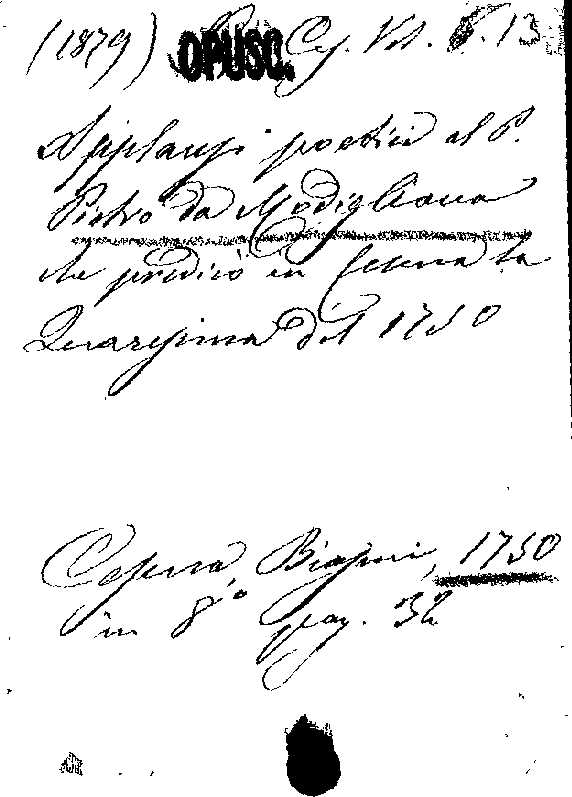 (1879) OPUSC. Ces. Vol. 8. 13
Applausi poetici al P.
Pietro da Modigliana
che predicò in Cesena la
Quaresima del 1750
Cesena Biasini, 1750
in 8.º pag. 32